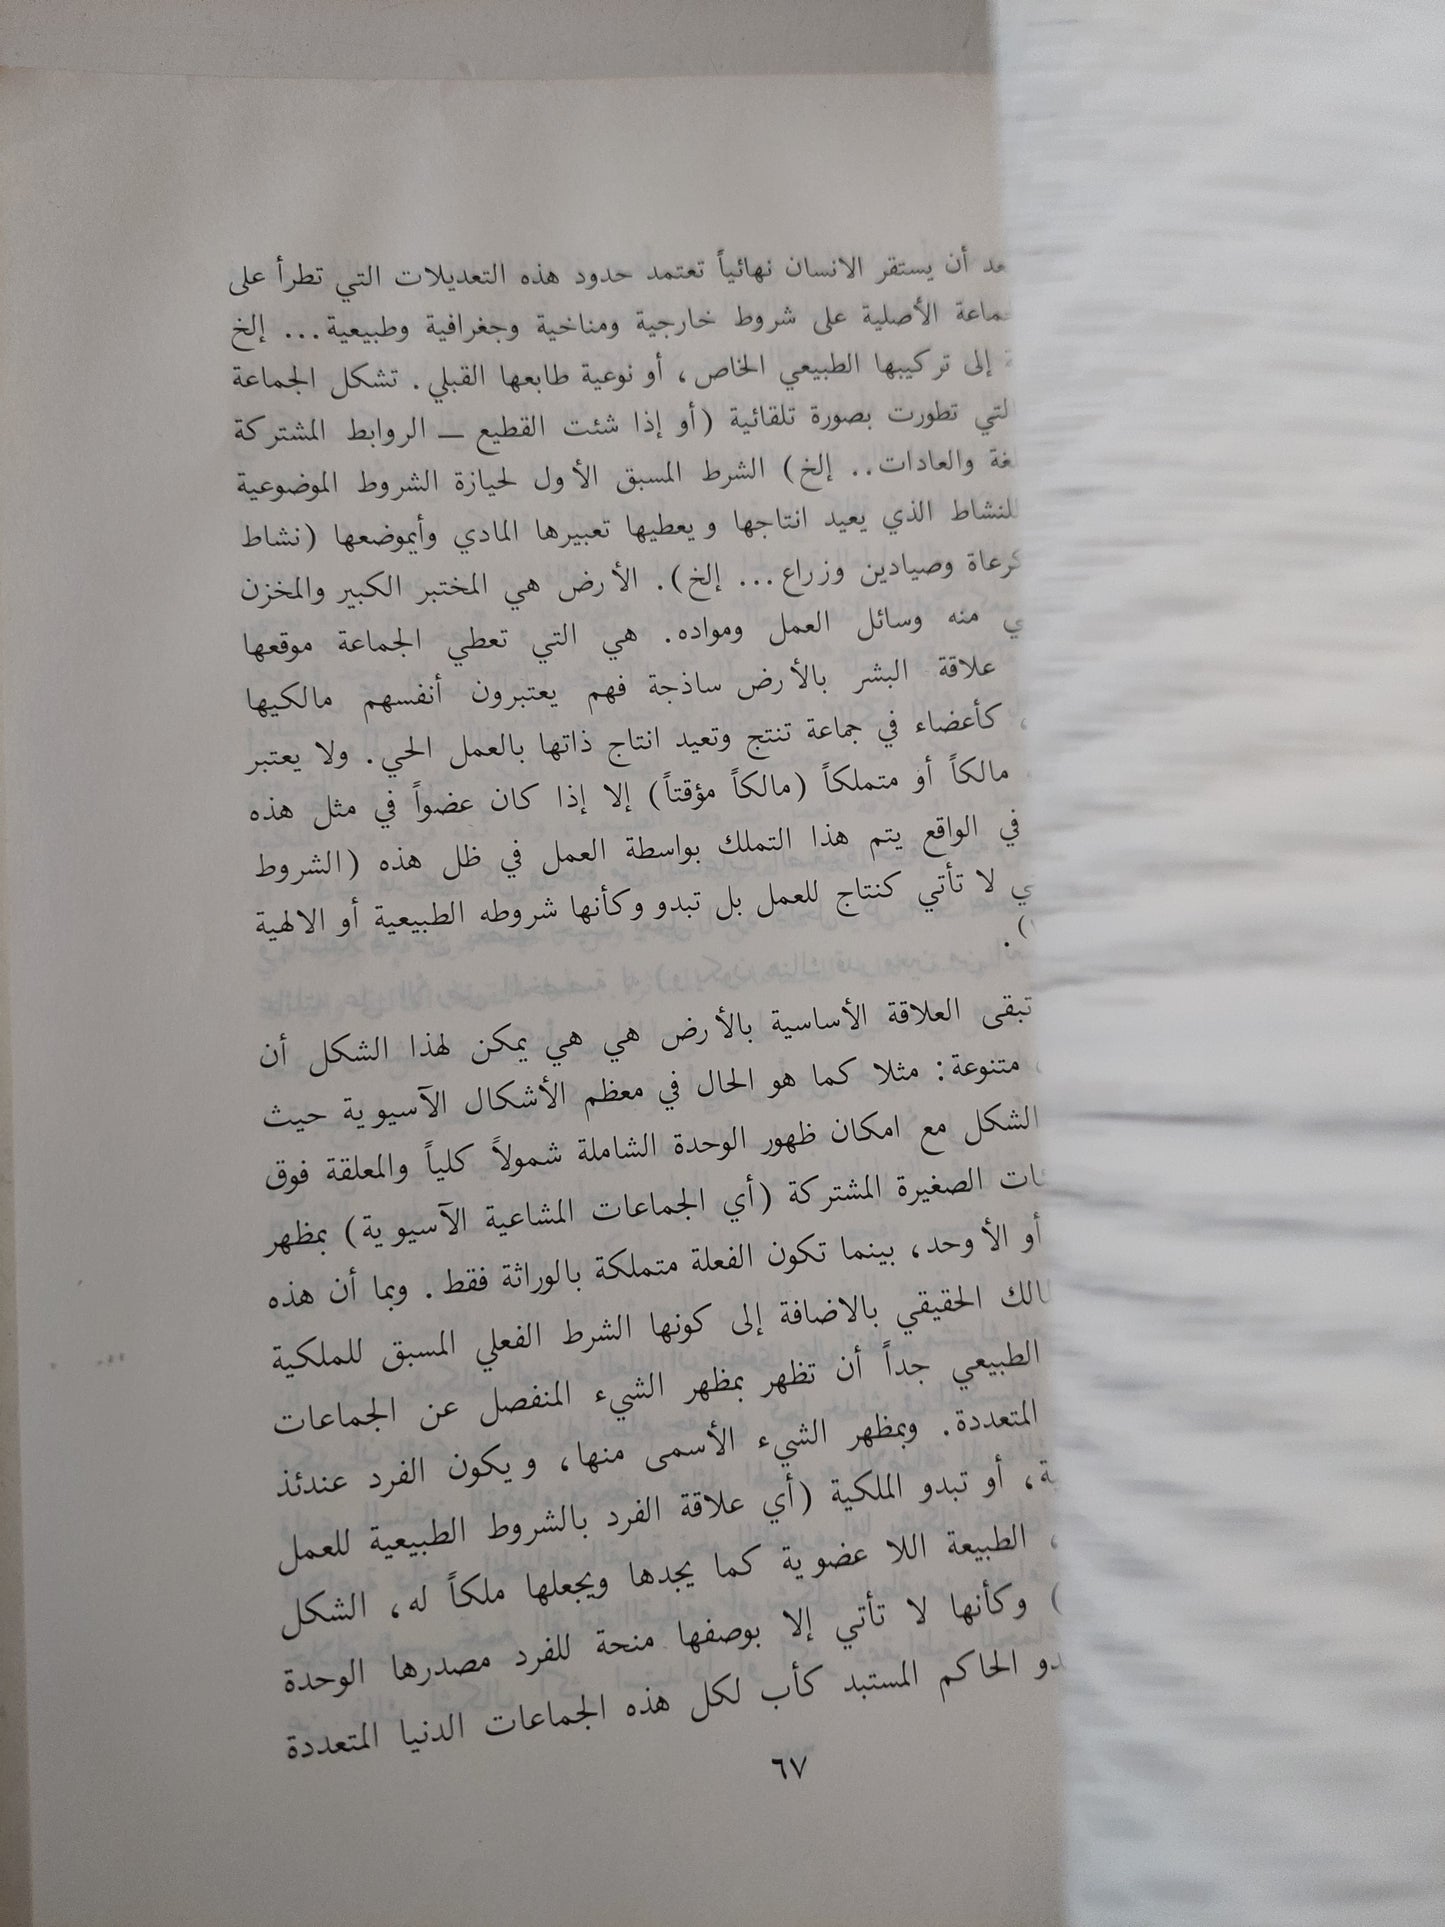 أن يستقر الانسان نهائياً تعتمد حدود هذه التعديلات التي تطرأ على
الأصلية على شروط خارجية ومناخية وجغرافية وطبيعية... إلخ
إلى تركيبها الطبيعي الخاص، أو نوعية طابعها القبلي. تشكل الجماعة
تطورت بصورة تلقائية (أو إذا شئت القطيع ــ الروابط المشتركة
والعادات.. إلخ) الشرط المسبق الأول لحيازة الشروط الموضوعية
للنشاط الذي يعيد انتاجها ويعطيها تعبيرها المادي وأيموضعها (نشاط
كرعاة وصيادين وزراع... إلخ). الأرض هي المختبر الكبير والمخزن
منه وسائل العمل ومواده. هي التي تعطي الجماعة موقعها
علاقة البشر بالأرض ساذجة فهم يعتبرون أنفسهم مالكيها
كأعضاء في جماعة تنتج وتعيد انتاج ذاتها بالعمل الحي. ولا يعتبر
مالكاً أو متملكاً (مالكاً مؤقتاً) إلا إذا كان عضواً في مثل هذه
في الواقع يتم هذا التملك بواسطة العمل في ظل هذه (الشروط
لا تأتي كنتاج للعمل بل تبدو وكأنها شروطه الطبيعية أو الالهية
).
تبقى العلاقة الأساسية بالأرض هي هي يمكن لهذا الشكل أن
متنوعة: مثلا كما هو الحال في معظم الأشكال الآسيوية حيث
الشكل مع امكان ظهور الوحدة الشاملة شمولاً كلياً والمعلقة فوق
الصغيرة المشتركة (أي الجماعات المشاعية الآسيوية) بمظهر
أو الأوحد، بينما تكون الفعلة متملكة بالوراثة فقط. وبما أن هذه
الحقيقي بالاضافة إلى كونها الشرط الفعلي المسبق للملكية
الطبيعي جداً أن تظهر بمظهر الشيء المنفصل عن الجماعات
المتعددة. وبمظهر الشيء الأسمى منها، ويكون الفرد عندئذ
، أو تبدو الملكية (أي علاقة الفرد بالشروط الطبيعية للعمل
، الطبيعة اللا عضوية كما يجدها ويجعلها ملكاً له، الشكل
) وكأنها لا تأتي إلا بوصفها منحة للفرد مصدرها الوحدة
الحاكم المستبد كأب لكل هذه الجماعات الدنيا المتعددة
٦٧